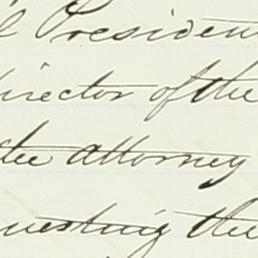 l President
director of the
the attorney
questing the